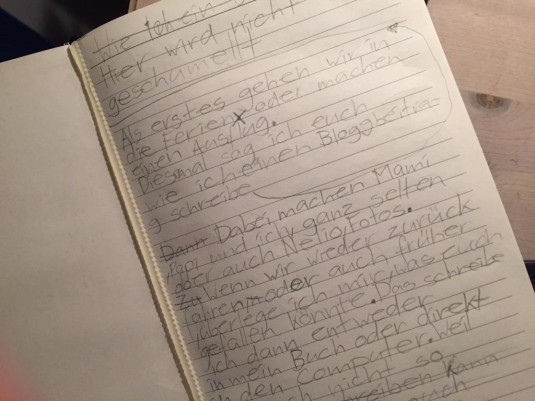 Wie ich ein
Hier wird nicht
geschumelt
Als erstes gehen wir in
die Ferien x oder machen
einen Ausflug.
Diesmal sag ich euch
wie ich einen Bloggbeitra=
g schreibe
Dann Dabei machen Mami
Papi und ich ganz selten
aber auch Nelio Fotos.
Zu wenn wir wieder zurück
fahren oder auch früher
überlege ich mir, was Euch
gefallen könnte. Das schreibe
ich dann entweder
in mein Buch oder direkt
in den Computer. Weil
ich nicht so
schreiben kann